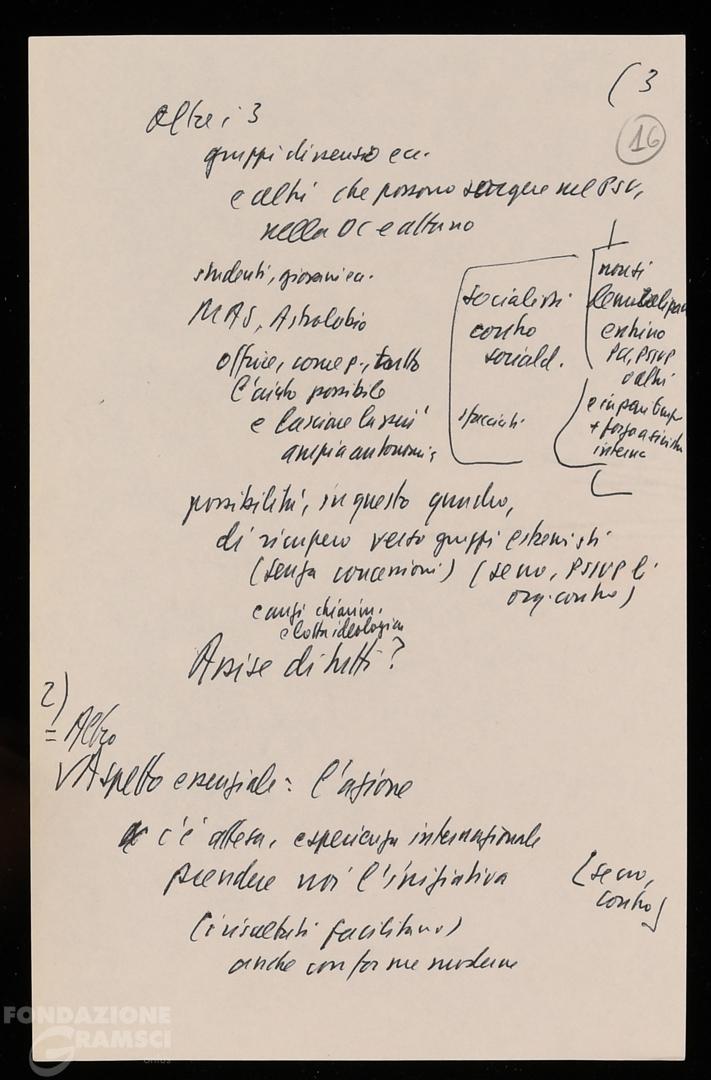 (3
16
Oltre i 3
gruppi di dissenso ecc.
e altri che possono sorgere nel PSU,
nella DC e altrove
studenti, giovani ecc.
MAS, Astrolabio
offrire, come p., tutto
l'aiuto possibile
e lasciare la più
ampia autonomia
socialisti
contro
sociald.
staccati
non si
entrino
PCI, PSIUP
e altri
e in pari temp
+ forza a sinistra
interna
possibilità, in questo quadro,
di recupero verso gruppi estremisti
(senza concessioni) (se no, PSIUP li
org. contro)
e anzi chiarim.
e lotta ideologica
Assise di tutti?
2)
= Altro
√ Aspetto essenziale: l'azione
c'è attesa, esperienza internazionale
prendere noi l'iniziativa
(se no,
contro)
(i risultati facilitano)
anche con forme moderne
FONDAZIONE
GRAMSCI
onlus